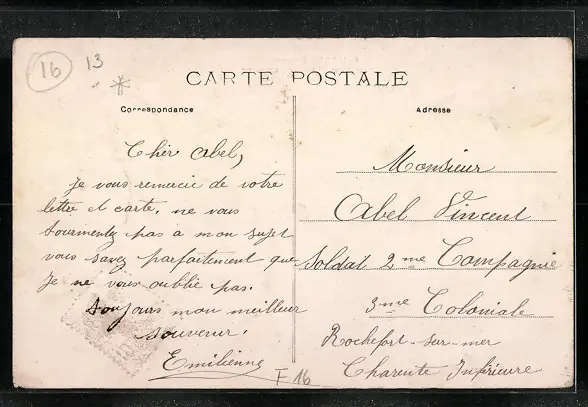 16
13
*
CARTE POSTALE
Correspondance
Cher Abel,
Je vous remercie de votre
lettre et carte, ne vous
tourmentez pas a mon sujet
vous savez parfaitement que
Je ne vous oublié pas.
Toujours mon meilleur
souvenir.
Emilienne
F 16
Adresse
Monsieur
Abel Vincent
Soldat 2me Compagnie
3me Coloniale
Rochefort-sur-mer
Charente Inférieure